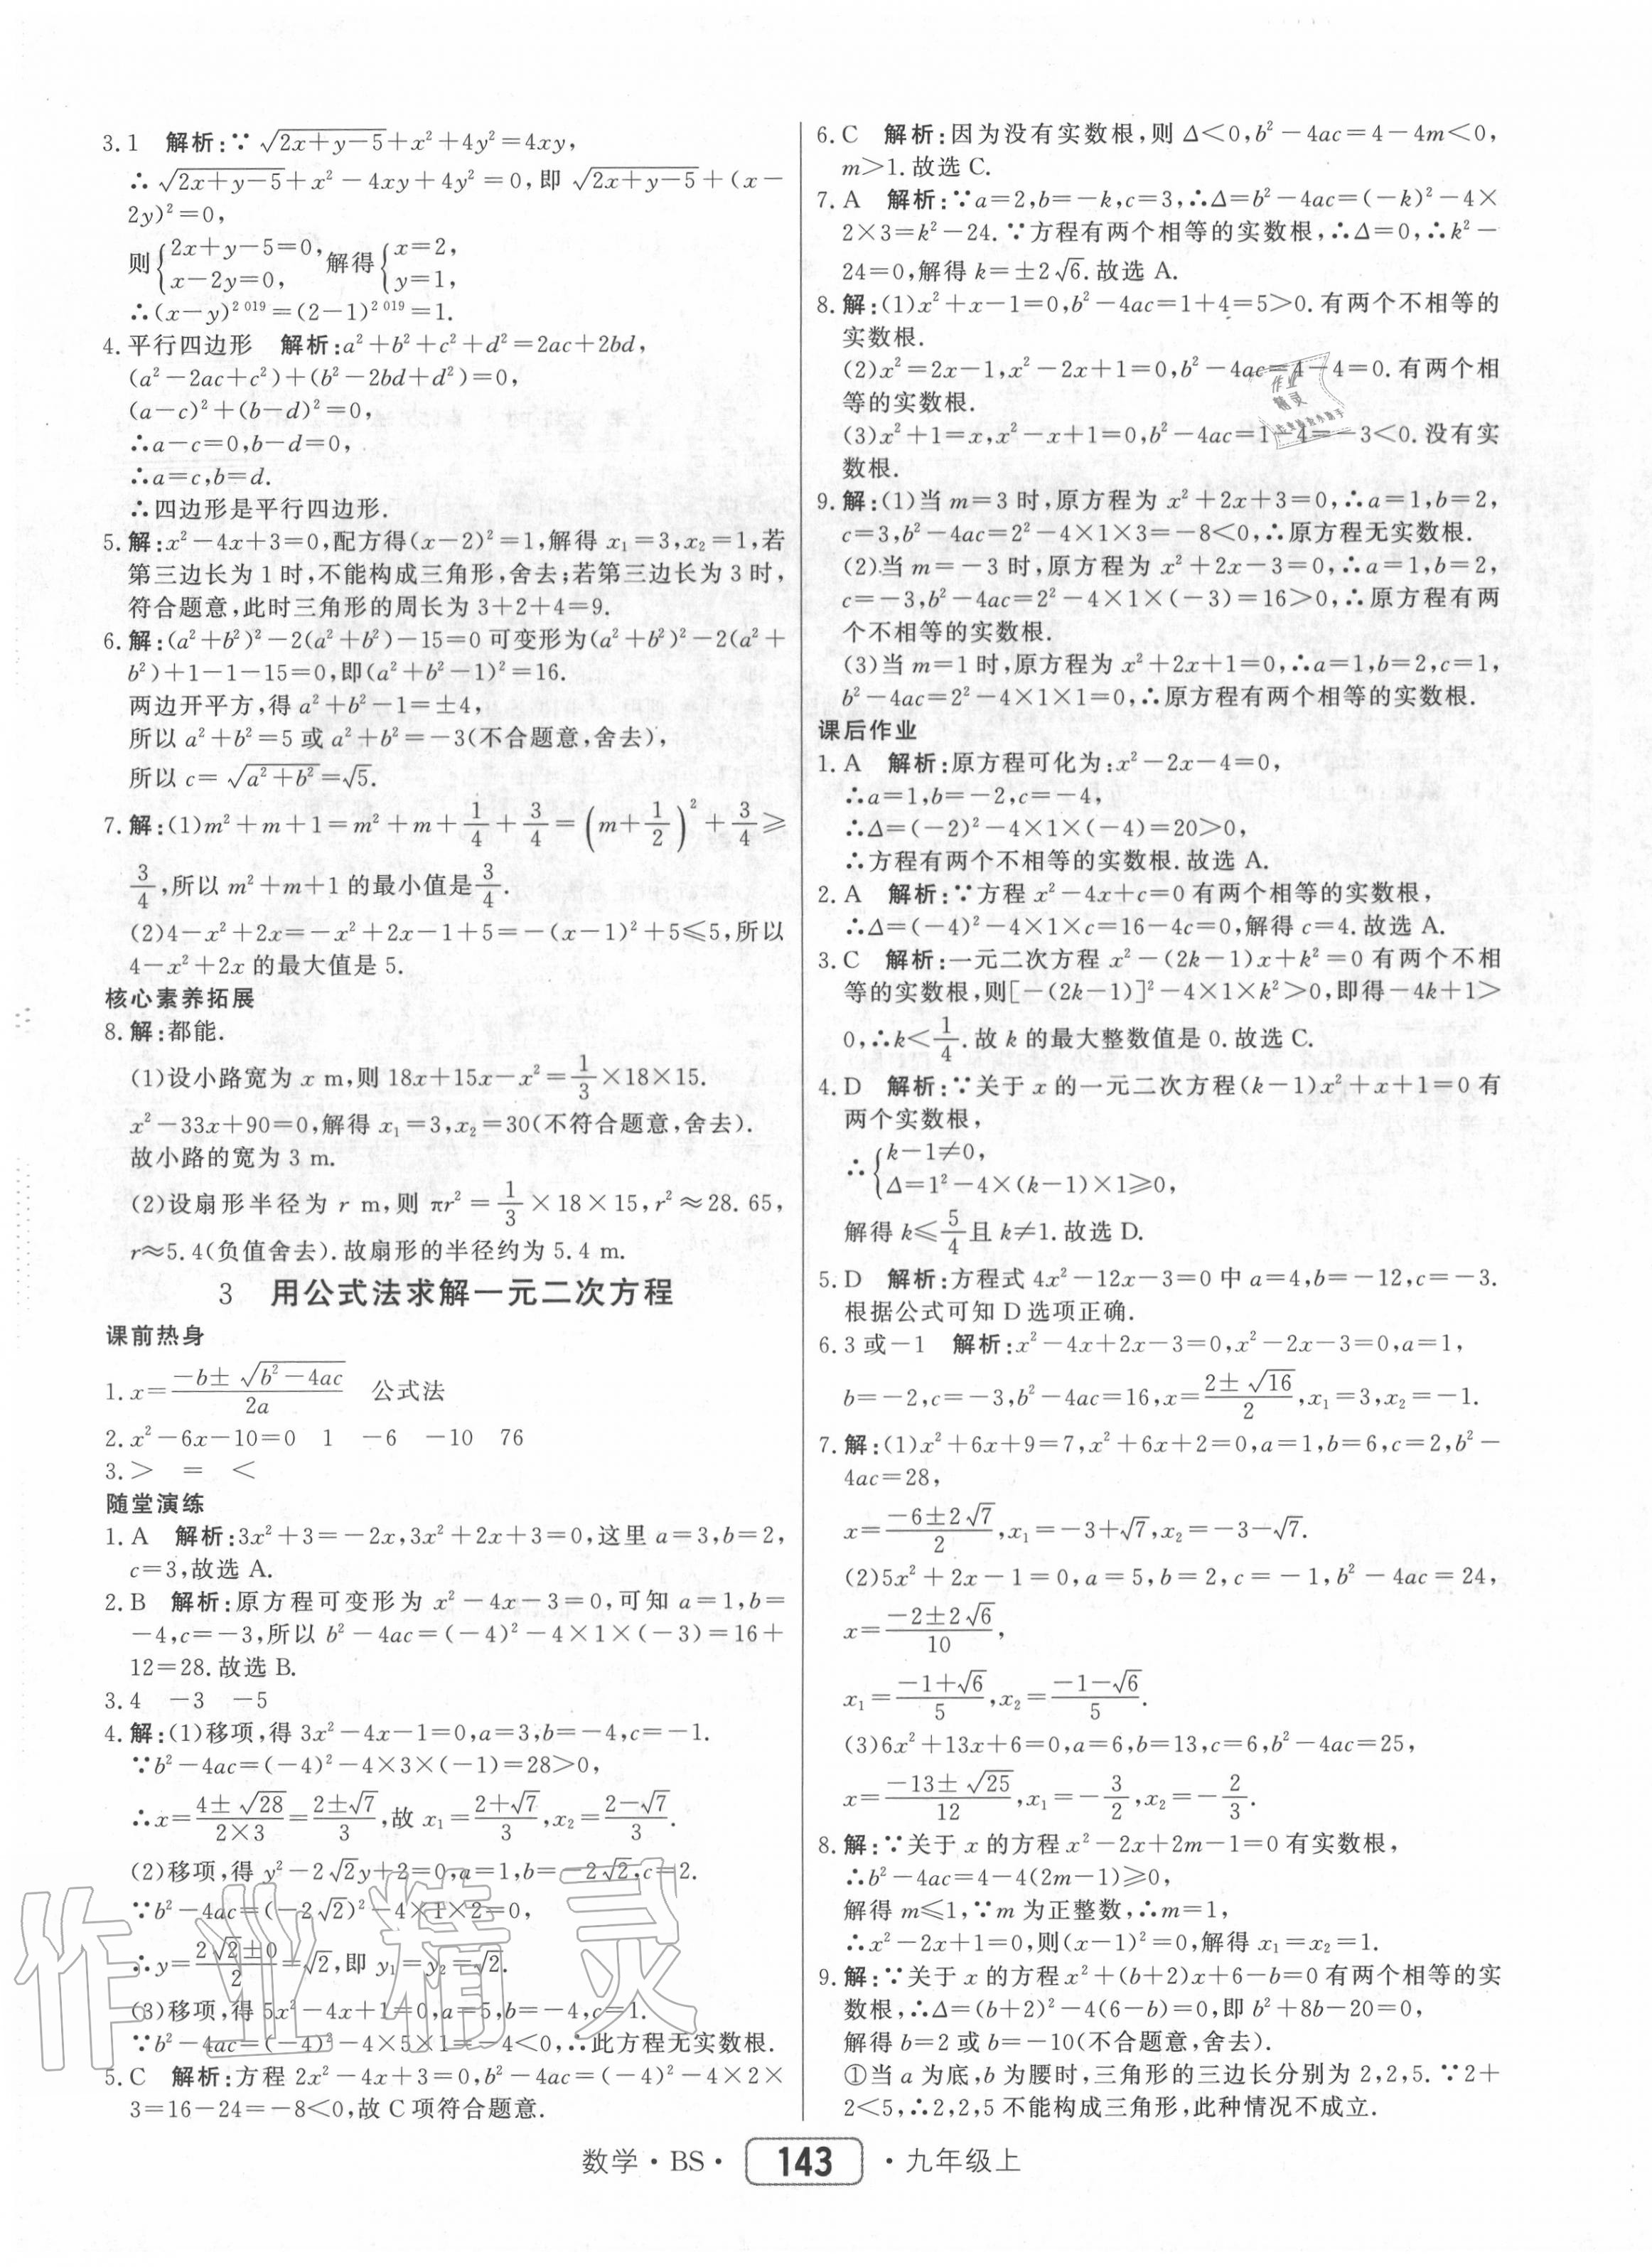 3.1 解析:∵√(2x+y-5)+x²+4y²=4xy,
∴√(2x+y-5)+x²-4xy+4y²=0,即√(2x+y-5)+(x-
2y)²=0,
则{2x+y-5=0, x-2y=0, 解得{x=2, y=1,
∴(x-y)^2 019=(2-1)^2 019=1.
4.平行四边形 解析:a²+b²+c²+d²=2ac+2bd,
(a²-2ac+c²)+(b²-2bd+d²)=0,
(a-c)²+(b-d)²=0,
∴a-c=0,b-d=0,
∴a=c,b=d.
∴四边形是平行四边形.
5.解:x²-4x+3=0,配方得(x-2)²=1,解得 x₁=3,x₂=1,若
第三边长为1时,不能构成三角形,舍去;若第三边长为3时,
符合题意,此时三角形的周长为3+2+4=9.
6.解:(a²+b²)²-2(a²+b²)-15=0可变形为(a²+b²)²-2(a²+
b²)+1-1-15=0,即(a²+b²-1)²=16.
两边开平方,得a²+b²-1=±4,
所以a²+b²=5或a²+b²=-3(不合题意,舍去),
所以c=√(a²+b²)=√5.
7.解:(1)m²+m+1=m²+m+1/4+3/4=(m+1/2)²+3/4≥
3/4,所以m²+m+1的最小值是3/4.
(2)4-x²+2x=-x²+2x-1+5=-(x-1)²+5≤5,所以
4-x²+2x的最大值是5.
核心素养拓展
8.解:都能.
(1)设小路宽为x m,则18x+15x-x²=1/3×18×15.
x²-33x+90=0,解得x₁=3,x₂=30(不符合题意,舍去).
故小路的宽为3 m.
(2)设扇形半径为r m,则πr²=1/3×18×15,r²≈28.65,
r≈5.4(负值舍去).故扇形的半径约为5.4 m.
3 用公式法求解一元二次方程
课前热身
1.x=(-b±√(b²-4ac))/2a 公式法
2.x²-6x-10=0 1 -6 -10 76
3.> = <
随堂演练
1.A 解析:3x²+3=-2x,3x²+2x+3=0,这里a=3,b=2,
c=3,故选A.
2.B 解析:原方程可变形为x²-4x-3=0,可知a=1,b=
-4,c=-3,所以b²-4ac=(-4)²-4×1×(-3)=16+
12=28.故选B.
3.4 -3 -5
4.解:(1)移项,得3x²-4x-1=0,a=3,b=-4,c=-1.
∵b²-4ac=(-4)²-4×3×(-1)=28>0,
∴x=(4±√28)/(2×3)=(2±√7)/3,故x₁=(2+√7)/3,x₂=(2-√7)/3.
(2)移项,得y²-2√2y+2=0,a=1,b=-2√2,c=2.
∵b²-4ac=(-2√2)²-4×1×2=0,
∴y=(2√2±0)/2=√2,即y₁=y₂=√2.
(3)移项,得5x²-4x+1=0,a=5,b=-4,c=1.
∵b²-4ac=(-4)²-4×5×1=-4<0,∴此方程无实数根.
5.C 解析:方程2x²-4x+3=0,b²-4ac=(-4)²-4×2×
3=16-24=-8<0,故C项符合题意.
6.C 解析:因为没有实数根,则Δ<0,b²-4ac=4-4m<0,
m>1.故选C.
7.A 解析:∵a=2,b=-k,c=3,∴Δ=b²-4ac=(-k)²-4×
2×3=k²-24.∵方程有两个相等的实数根,∴Δ=0,∴k²-
24=0,解得k=±2√6.故选A.
8.解:(1)x²+x-1=0,b²-4ac=1+4=5>0.有两个不相等的
实数根.
(2)x²=2x-1,x²-2x+1=0,b²-4ac=4-4=0.有两个相
等的实数根.
(3)x²+1=x,x²-x+1=0,b²-4ac=1-4=-3<0.没有实
数根.
9.解:(1)当m=3时,原方程为x²+2x+3=0,∴a=1,b=2,
c=3,b²-4ac=2²-4×1×3=-8<0,∴原方程无实数根.
(2)当m=-3时,原方程为x²+2x-3=0,∴a=1,b=2,
c=-3,b²-4ac=2²-4×1×(-3)=16>0,∴原方程有两
个不相等的实数根.
(3)当m=1时,原方程为x²+2x+1=0,∴a=1,b=2,c=1,
b²-4ac=2²-4×1×1=0,∴原方程有两个相等的实数根.
课后作业
1.A 解析:原方程可化为:x²-2x-4=0,
∴a=1,b=-2,c=-4,
∴Δ=(-2)²-4×1×(-4)=20>0,
∴方程有两个不相等的实数根.故选A.
2.A 解析:∵方程x²-4x+c=0有两个相等的实数根,
∴Δ=(-4)²-4×1×c=16-4c=0,解得c=4.故选A.
3.C 解析:一元二次方程x²-(2k-1)x+k²=0有两个不相
等的实数根,则[-(2k-1)]²-4×1×k²>0,即得-4k+1>
0,∴k<1/4.故k的最大整数值是0.故选C.
4.D 解析:∵关于x的一元二次方程(k-1)x²+x+1=0有
两个实数根,
∴{k-1≠0, Δ=1²-4×(k-1)×1≥0,
解得k≤5/4且k≠1.故选D.
5.D 解析:方程式4x²-12x-3=0中a=4,b=-12,c=-3.
根据公式可知D选项正确.
6.3或-1 解析:x²-4x+2x-3=0,x²-2x-3=0,a=1,
b=-2,c=-3,b²-4ac=16,x=(2±√16)/2,x₁=3,x₂=-1.
7.解:(1)x²+6x+9=7,x²+6x+2=0,a=1,b=6,c=2,b²-
4ac=28,
x=(-6±2√7)/2,x₁=-3+√7,x₂=-3-√7.
(2)5x²+2x-1=0,a=5,b=2,c=-1,b²-4ac=24,
x=(-2±2√6)/10,
x₁=(-1+√6)/5,x₂=(-1-√6)/5.
(3)6x²+13x+6=0,a=6,b=13,c=6,b²-4ac=25,
x=(-13±√25)/12,x₁=-3/2,x₂=-2/3.
8.解:∵关于x的方程x²-2x+2m-1=0有实数根,
∴b²-4ac=4-4(2m-1)≥0,
解得m≤1,∵m为正整数,∴m=1,
∴x²-2x+1=0,则(x-1)²=0,解得x₁=x₂=1.
9.解:∵关于x的方程x²+(b+2)x+6-b=0有两个相等的实
数根,∴Δ=(b+2)²-4(6-b)=0,即b²+8b-20=0,
解得b=2或b=-10(不合题意,舍去).
①当a为底,b为腰时,三角形的三边长分别为2,2,5.∵2+
2<5,∴2,2,5不能构成三角形,此种情况不成立.
数学·BS· 143 ·九年级上
作业精灵
作业
精灵